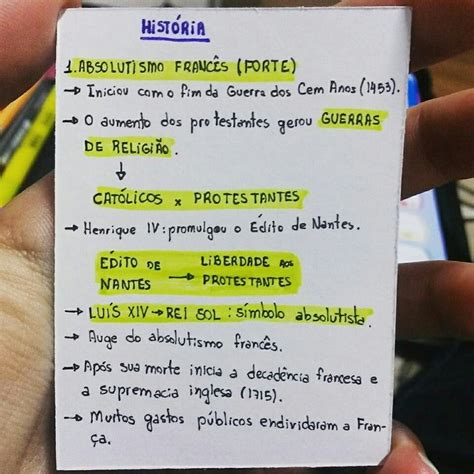 HISTÓRIA
1. ABSOLUTISMO FRANCÊS (FORTE)
→ Iniciou com o fim da Guerra dos Cem Anos (1453).
→ O aumento dos protestantes gerou GUERRAS
DE RELIGIÃO.
↓
CATÓLICOS x PROTESTANTES
→ Henrique IV: promulgou o Édito de Nantes.
EDITO DE → LIBERDADE aos
NANTES PROTESTANTES
→ LUÍS XIV → REI SOL: símbolo absolutista.
→ Auge do absolutismo francês.
→ Após sua morte inicia a decadência francesa e
a supremacia inglesa (1715).
→ Muitos gastos públicos endividaram a Fran-
ça.